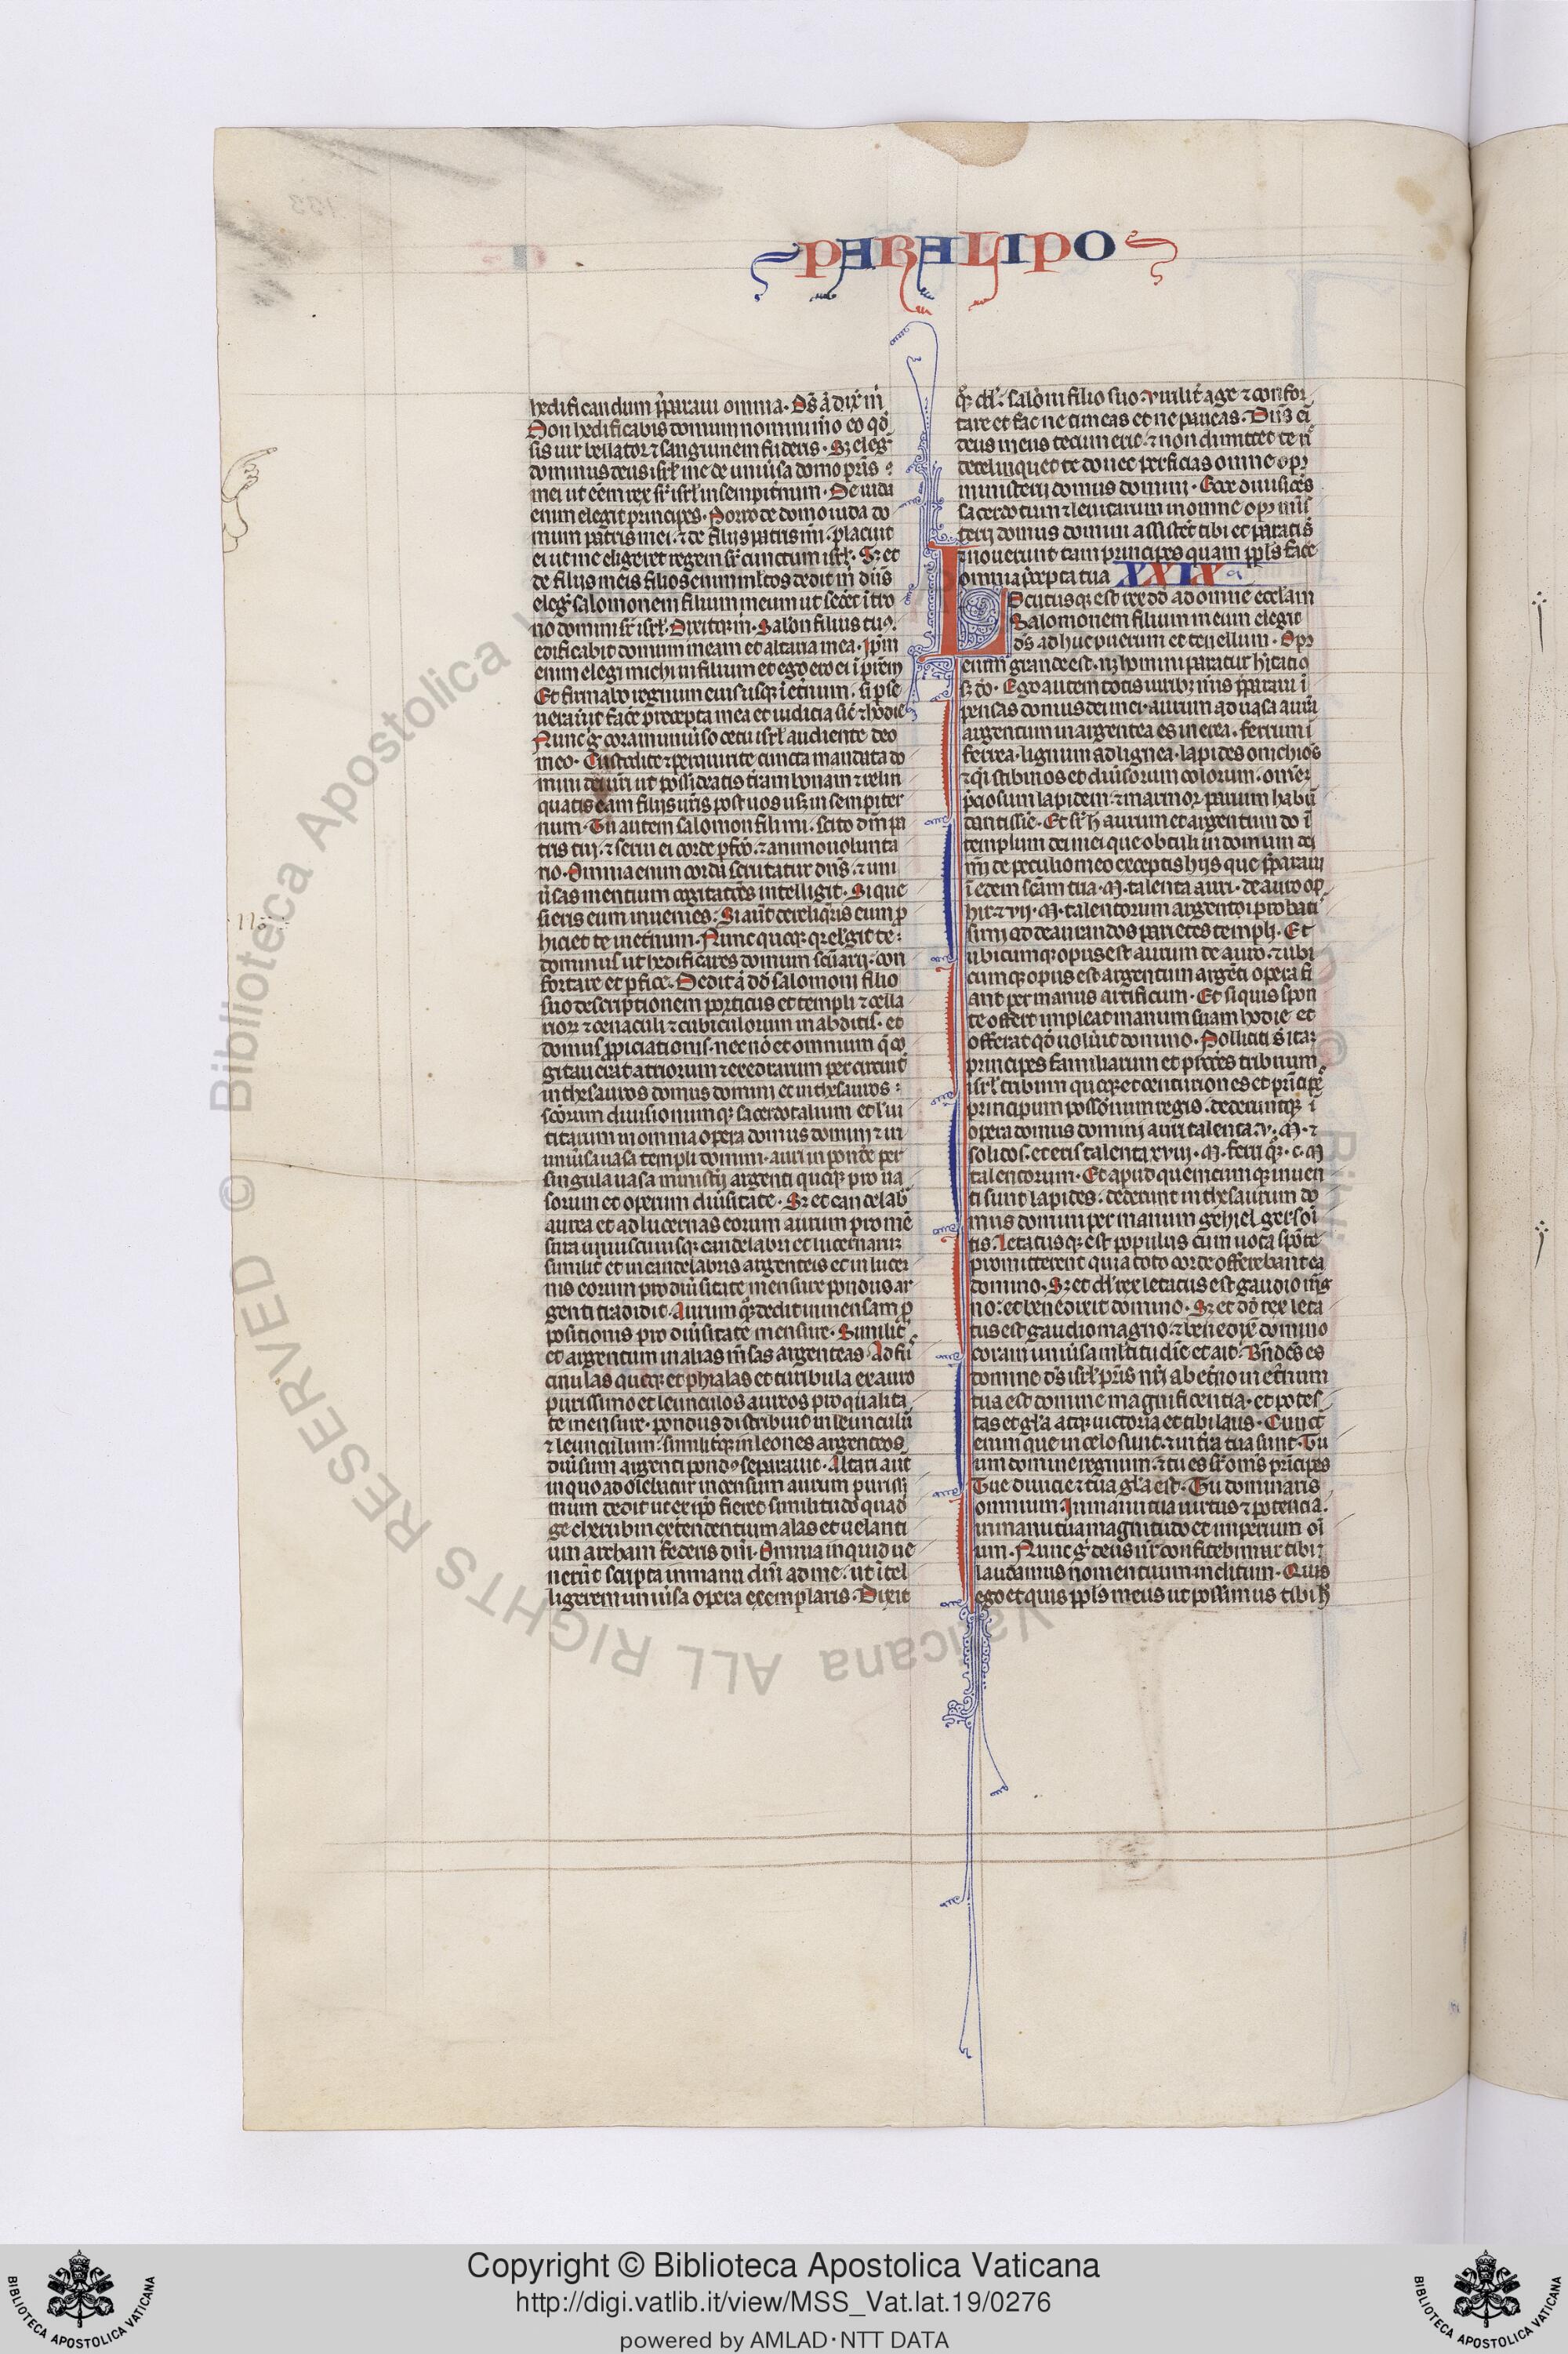 PARALIPO
hedificandum p̄paraui omnia. Ds̄ aͭ dix̄ m̄
Non hedificabis domum nomini mō eo qđ
sis uir bellator ⁊ sanguinem fuderis. Sꝫ eleḡ
dominus deus isrł me de uniu̾sa domo pr̄is
mei ut eēm rex sr̄ isrł in sempit̾num. De iuda
enim elegit principes. Porro de domo iuda do
mum patris mei. ⁊ de filijs patris mī. placuit
ei ut me eligeret regem sr̄ cunctum isrł. Sꝫ et
de filijs meis filios enim ml̄tos dedit m̄ dn̄s
eleg̾ salomonem filium meum ut seđet ī tro
no domini sr̄ isrł. Dixitqꝫ m̄. Salon̄ filius tuꝯ.
edificabit domum meam et altaria mea. Ipm̄
enim elegi michi in filium et ego ero ei ī pr̄em
Et firmabo regnum eius usqꝫ ī et̾num. si p̱se
uerau̾it face̾ precepta mea et iudicia sic̄ ⁊ hodie
Nunc g̾ coram uniu̾so cetu isrł audiente deo
meo. Custodite ⁊ perquirite cuncta mandata do
mini dei nr̄i ut possideatis tr̄am bonam ⁊ relin
quatis eam filijs ur̄is post uos usqꝫ in sempiter
num. Tu autem salomon fili mi. scito dm̄ pa
tris tui. ⁊ serui ei corde ꝑfc̄o. ⁊ animo uolunta
rio. Omnia enim corda scrutatur dn̄s. ⁊ uni
u̾sas mentium cogitatōes intelligit. Si que
sieris eum inuenies. Si aūt dereliq̾ris eum ꝓ
hiciet te in et̾num. Nunc quoqꝫ qꝛ elegit te
dominus ut hedificares domum sc̄uarij. con
fortare et ꝑfice. Dedit aͭ dd̄ salomoni filio
suo descriptionem porticus et templi ⁊ cella
rioꝝ ⁊ cenaculi ⁊ cubiculorum in abditis. et
domus ꝓpiciationis. nec nō et omnium q̄ co
gitauerat atriorum ⁊ exedrarum per circuit
in thesauros domus domini et in thesauros
sc̄orum diuisionumqꝫ sacerdotalium et leui
titarum in omnia opera domus domini ⁊ in
uniu̾sa uasa templi domini. auri in ponde̾ per
singula uasa ministij argenti quoqꝫ pro ua
sorum et operum diu̾sitate. Sꝫ et candelab̾
aurea et ad lucernas eorum aurum pro mē
sura uniuscuiusqꝫ candelabri et lucernaruꝫ
similit̾ et in candelabris argenteis et in lucer
nis eorum pro diu̾sitate mensure pondus ar
genti tradidit. Aurum qꝫ dedit in mensam ꝓ
positionis pro diu̾sitate mensure. Similit̾
et argentum in alias m̄sas argenteas. Ad fu
cinulas quoqꝫ et phialas et turibula ex auro
purissimo et leunculos aureos pro qualita
te mensure. pondus distribuit in leunculū
⁊ leunculum. similit̾qꝫ in leones argenteos
diu̾sum argenti pondꝯ separauit. Altari aūt
in quo adoletatur incensum aurum purissi
mum dedit ut ex ip̄o fieret similitudo quad̾
ge cherubin extendentium alas et uelanti
um archam federis dn̄i. Omnia inquid ue
nerūt scripta in manu dn̄i ad me. ut ītel
ligerem uniu̾sa opera exemplaris. Dixit
qꝫ dd̄. salōni filio suo. uirilit̾ age ⁊ confor
tare et fac ne timeas et ne paueas. Dn̄s eī
deus meus tecum erit. ⁊ non dimittet te n̄
derelinquet te donec perficias omne opꝯ
ministerij domus domini. Ecce diuisiōes
sacerdotum ⁊ leuitarum in omne opꝯ mī
terij domus domini assistēt tibi et parati s̄
⁊ nouerunt tam principes quam ppl̄s face̾
omnia p̄cepta tua XXIX
Locutusqꝫ est rex dd̄ ad omnē eccl̄am
Salomonem filium meum elegit
ds̄ adhuc puerum et tenellum. Opꝯ
enim grande est. n̄ hōmini paratur hītatio
sꝫ do. Ego autem totis uiribꝫ m̄is p̄paraui ī
pensas domus dei mei. aurum ad uasa aur̄a
argentum in argentea es in erea. ferrum ī
ferrea. lignum ad lignea. lapides onichios
⁊ q̄i stibinos et diu̾sorum colorum. om̄eꝫ
p̄ciosum lapidem. ⁊ marmor parium habū
dantissīe. Et sr̄ h̄ aurum et argentum do ī
templum dei mei que obtuli in domum dei
m̄ de peculio meo exceptis hijs que p̄paraui
ī edem sc̄am tua. M. talenta auri. de auro op
hir. ⁊ vij. M. talentorum argenti ꝓbati
simi ad deaurandos parietes templi. Et
ubicumqꝫ opus est aurum de auro. ⁊ ubi
cumqꝫ opus est argentum argēti opera fi
ant per manus artificum. Et si quis spon
te offert impleat manum suam hodie et
offerat qđ uolu̾it domino. Polliciti s̄ itaqꝫ
principes familiarum et ꝓceres tribuum
isrł tribuni quoqꝫ et centuriones et pr̄incipēs
principum possōnum regis. dederuntqꝫ ī
opera domus domini auri talenta. v. M. ⁊
solidos. et eris talenta xviij. M. ferri qꝫ. c. M
talentorum. Et apud quemcumqꝫ inuen
ti sunt lapides. dederunt in thesaurum do
mus domini per manum gehiel gersoī
tis. Letatusqꝫ est populus cum uota spōte
promitterent quia toto corde offerebant ea
domino. Sꝫ et dd̄ rex letatus est gaudio mag
no: et benedixit domino. Sꝫ et dd̄ rex leta
tus est gaudio magno. ⁊ benedix̄ domino
coram uniu̾sa ml̄titudīe et ait. Bn̄dc̄s es
domine ds̄ isrł pr̄is nr̄i ab et̾no in et̾num
tua est domine magnificentia. et potes
tas et gl̄a atqꝫ uictoria et tibi laus. Cunct̾
enim que in celo sunt. ⁊ in tr̄a tua sunt. Tu
um domine regnum. ⁊ tu es sr̄ om̄s principes
Tue diuicie ⁊ tua gl̄a est. Tu dominaris
omnium. In manu tua uirtus ⁊ potencia.
in manu tua magnitudo et imperium oī
um. Nunc g̾ deus nr̄ confitebimur tibi ⁊
laudamus nomen tuum inclitum. Quis
ego et quis ppl̄s meus ut possimus tibi h̄
Copyright © Biblioteca Apostolica Vaticana
http://digi.vatlib.it/view/MSS_Vat.lat.19/0276
powered by AMLAD·NTT DATA
BIBLIOTECA APOSTOLICA VATICANA
BIBLIOTECA APOSTOLICA VATICANA
© Biblioteca Apostolica Vaticana ALL RIGHTS RESERVED